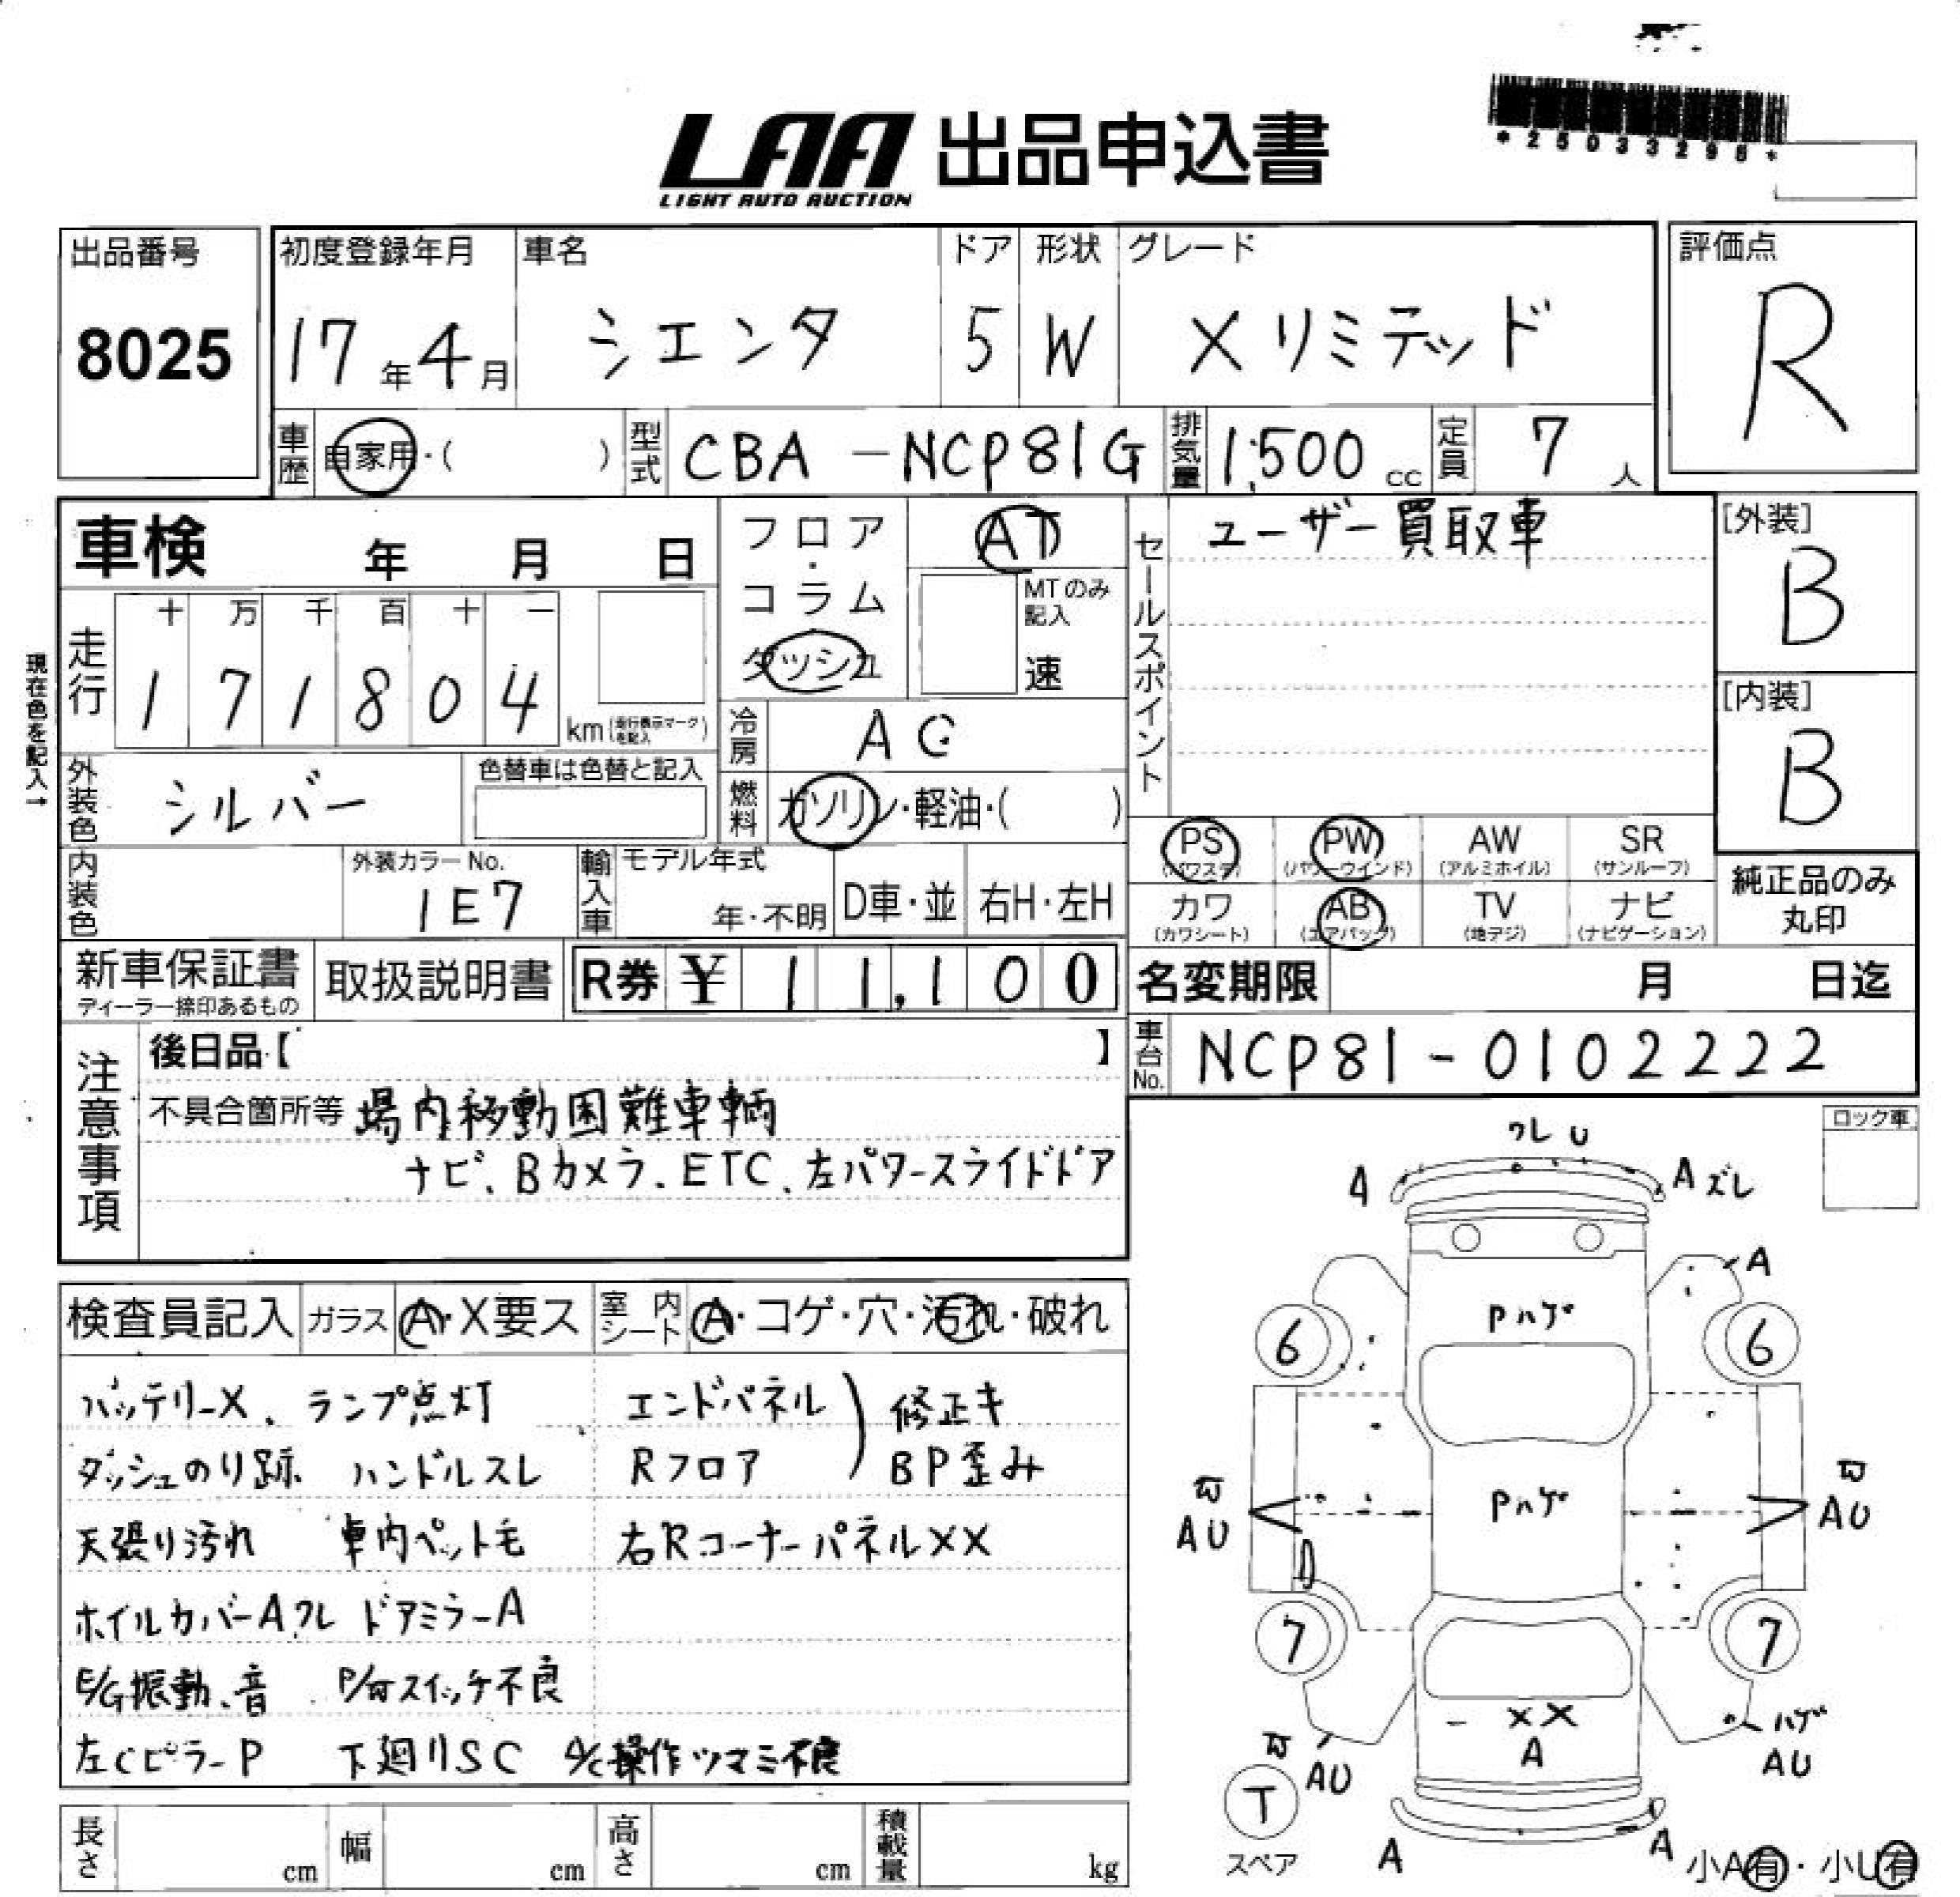 *25033298*
LAA 出品申込書
LIGHT AUTO AUCTION
出品番号
8025
初度登録年月
17年4月
車名
シエンタ
ドア
5
形状
W
グレード
Xリミテッド
評価点
R
車歴
自家用・( )
型式
CBA-NCP81G
排気量
1,500 cc
定員
7人
車検 年 月 日
フロア・コラム
ダッシュ
AT
MTのみ記入
速
セールスポイント
ユーザー買取車
[外装]
B
[内装]
B
現在色を記入→
走行
十 万 千 百 十 一
1 7 1 8 0 4
km(走行表示マークを記入)
冷房
AC
外装色
シルバー
色替車は色替と記入
燃料
ガソリン・軽油・( )
PS
(パワステ)
PW
(パワーウインド)
AW
(アルミホイル)
SR
(サンルーフ)
カワ
(カワシート)
AB
(エアバック)
TV
(地デジ)
ナビ
(ナビゲーション)
純正品のみ
丸印
内装色
外装カラーNo.
1E7
輸入車
モデル年式
年・不明
D車・並
右H・左H
新車保証書
ディーラー捺印あるもの
取扱説明書
R券 ¥ 11,100
名変期限 月 日迄
車台No.
NCP81-0102222
注意事項
後日品【 】
不具合箇所等 場内移動困難車輌
ナビ、Bカメラ、ETC、左パワースライドドア
ロック車
検査員記入
ガラス
A・X要ス
室内シート
A・コゲ・穴・汚れ・破れ
バッテリーX、ランプ点灯
エンドパネル
修正キ
ダッシュのり跡 ハンドルスレ
Rフロア
BP歪み
天張り汚れ 車内ペット毛
右RコーナーパネルXX
ホイルカバーAワレ ドアミラーA
E/G振動、音 P/Wスイッチ不良
左CピラーP 下廻りSC A/C操作ツマミ不良
ワレ U
A
Aズレ
A
Pハゲ
6
6
Pハゲ
AU
AU
7
7
XX
A
ハゲ
AU
AU
T
スペア
A
A
小A有・小U有
長さ cm
幅 cm
高さ cm
積載量 kg